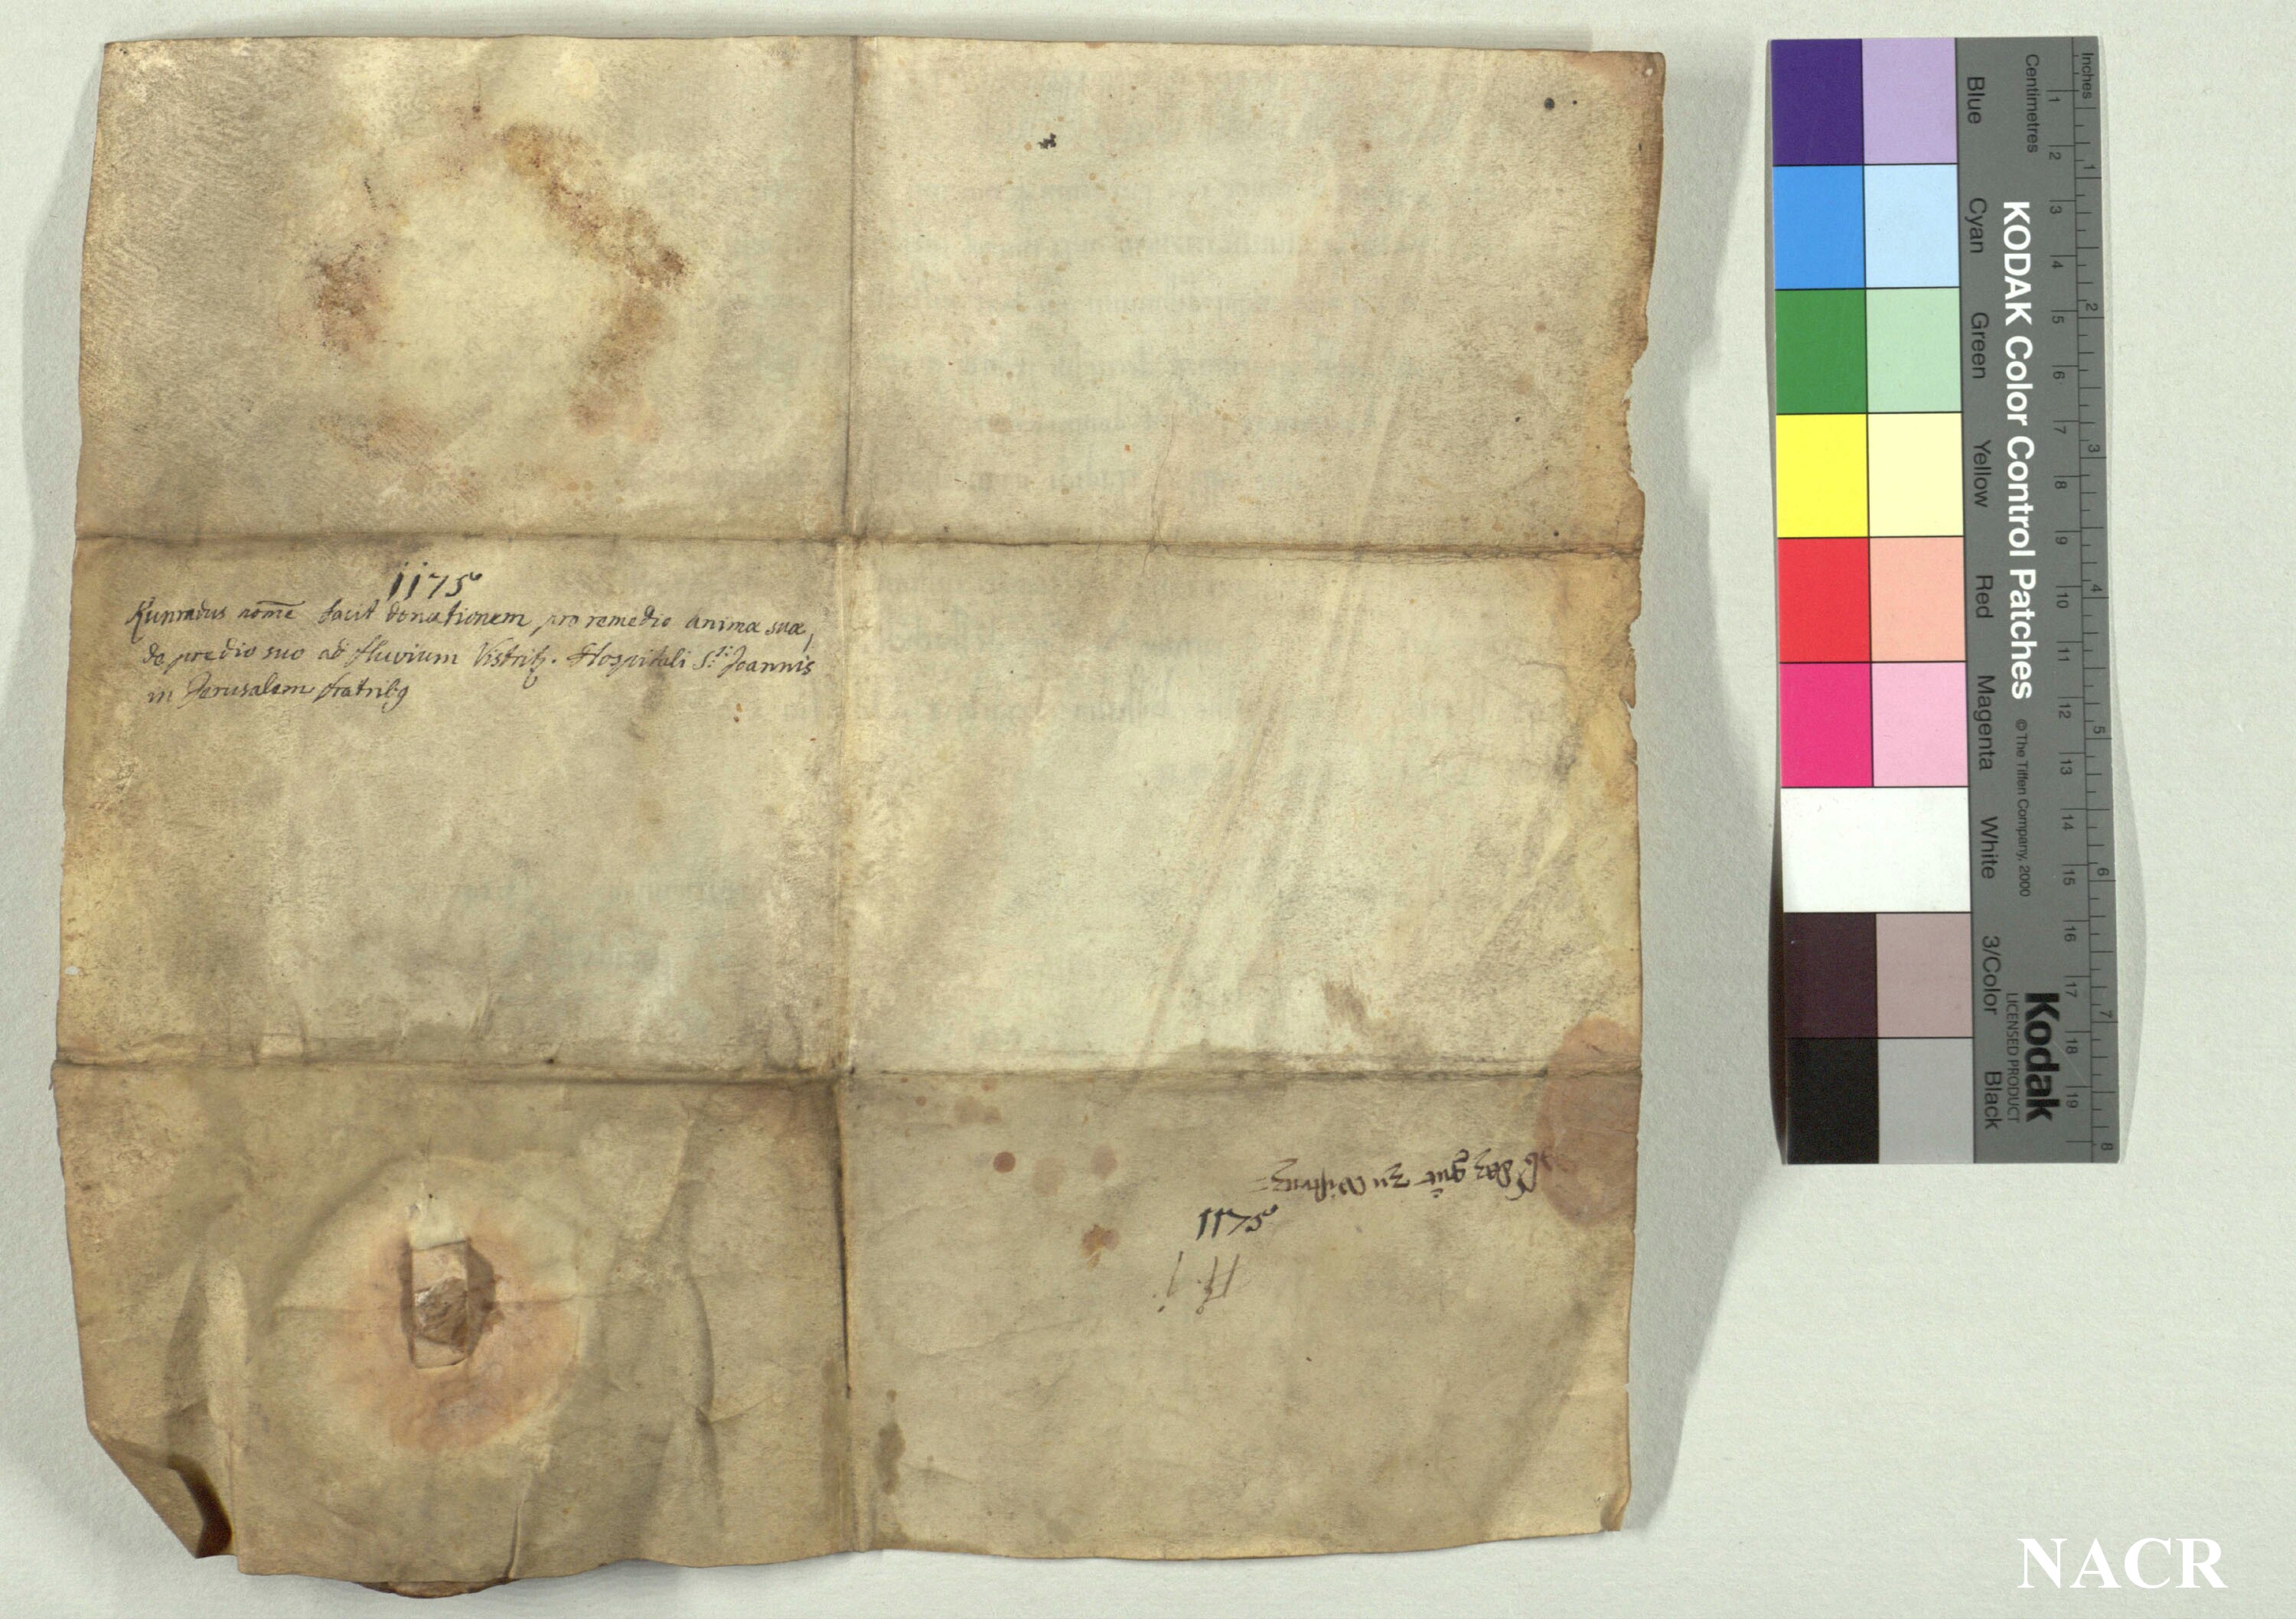 1175
Kunradus nom̄e facit donationem pro remedio animæ suæ,
de prædio suo ad fluvium Vistritz. Hospitali S.ti Joannis
in Jerusalem fratrib9
daz gut zu Wistritz
1175
Inches
Centimetres
1 2 3 4 5 6 7 8 9 10 11 12 13 14 15 16 17 18 19
1 2 3 4 5 6 7 8
KODAK Color Control Patches © The Tiffen Company, 2000
Kodak
LICENSED PRODUCT
Blue Cyan Green Yellow Red Magenta White 3/Color Black
NACR